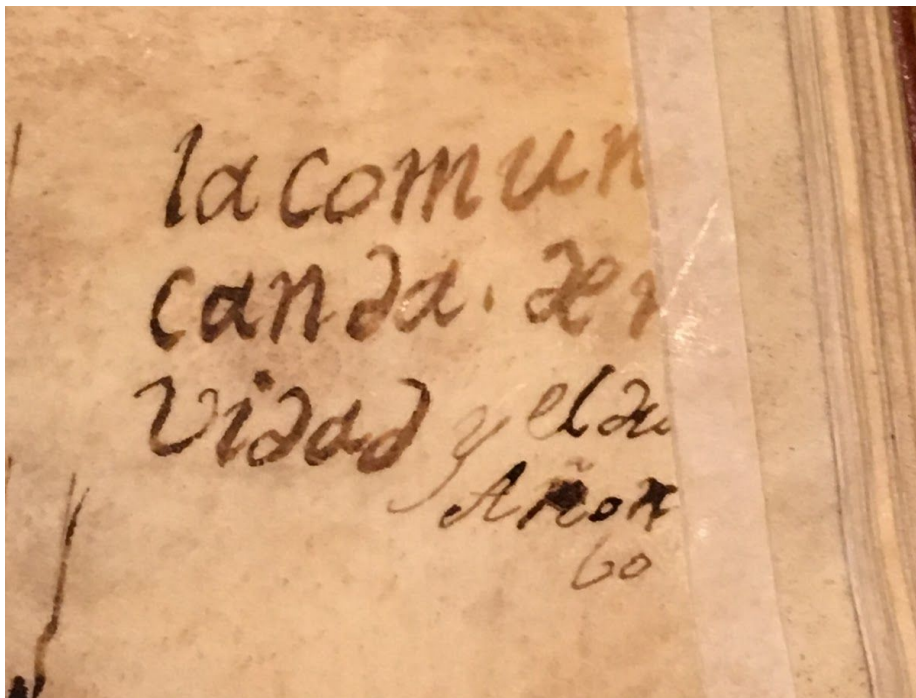 la comun
canda. de n
vidad y el de
Añon
bo